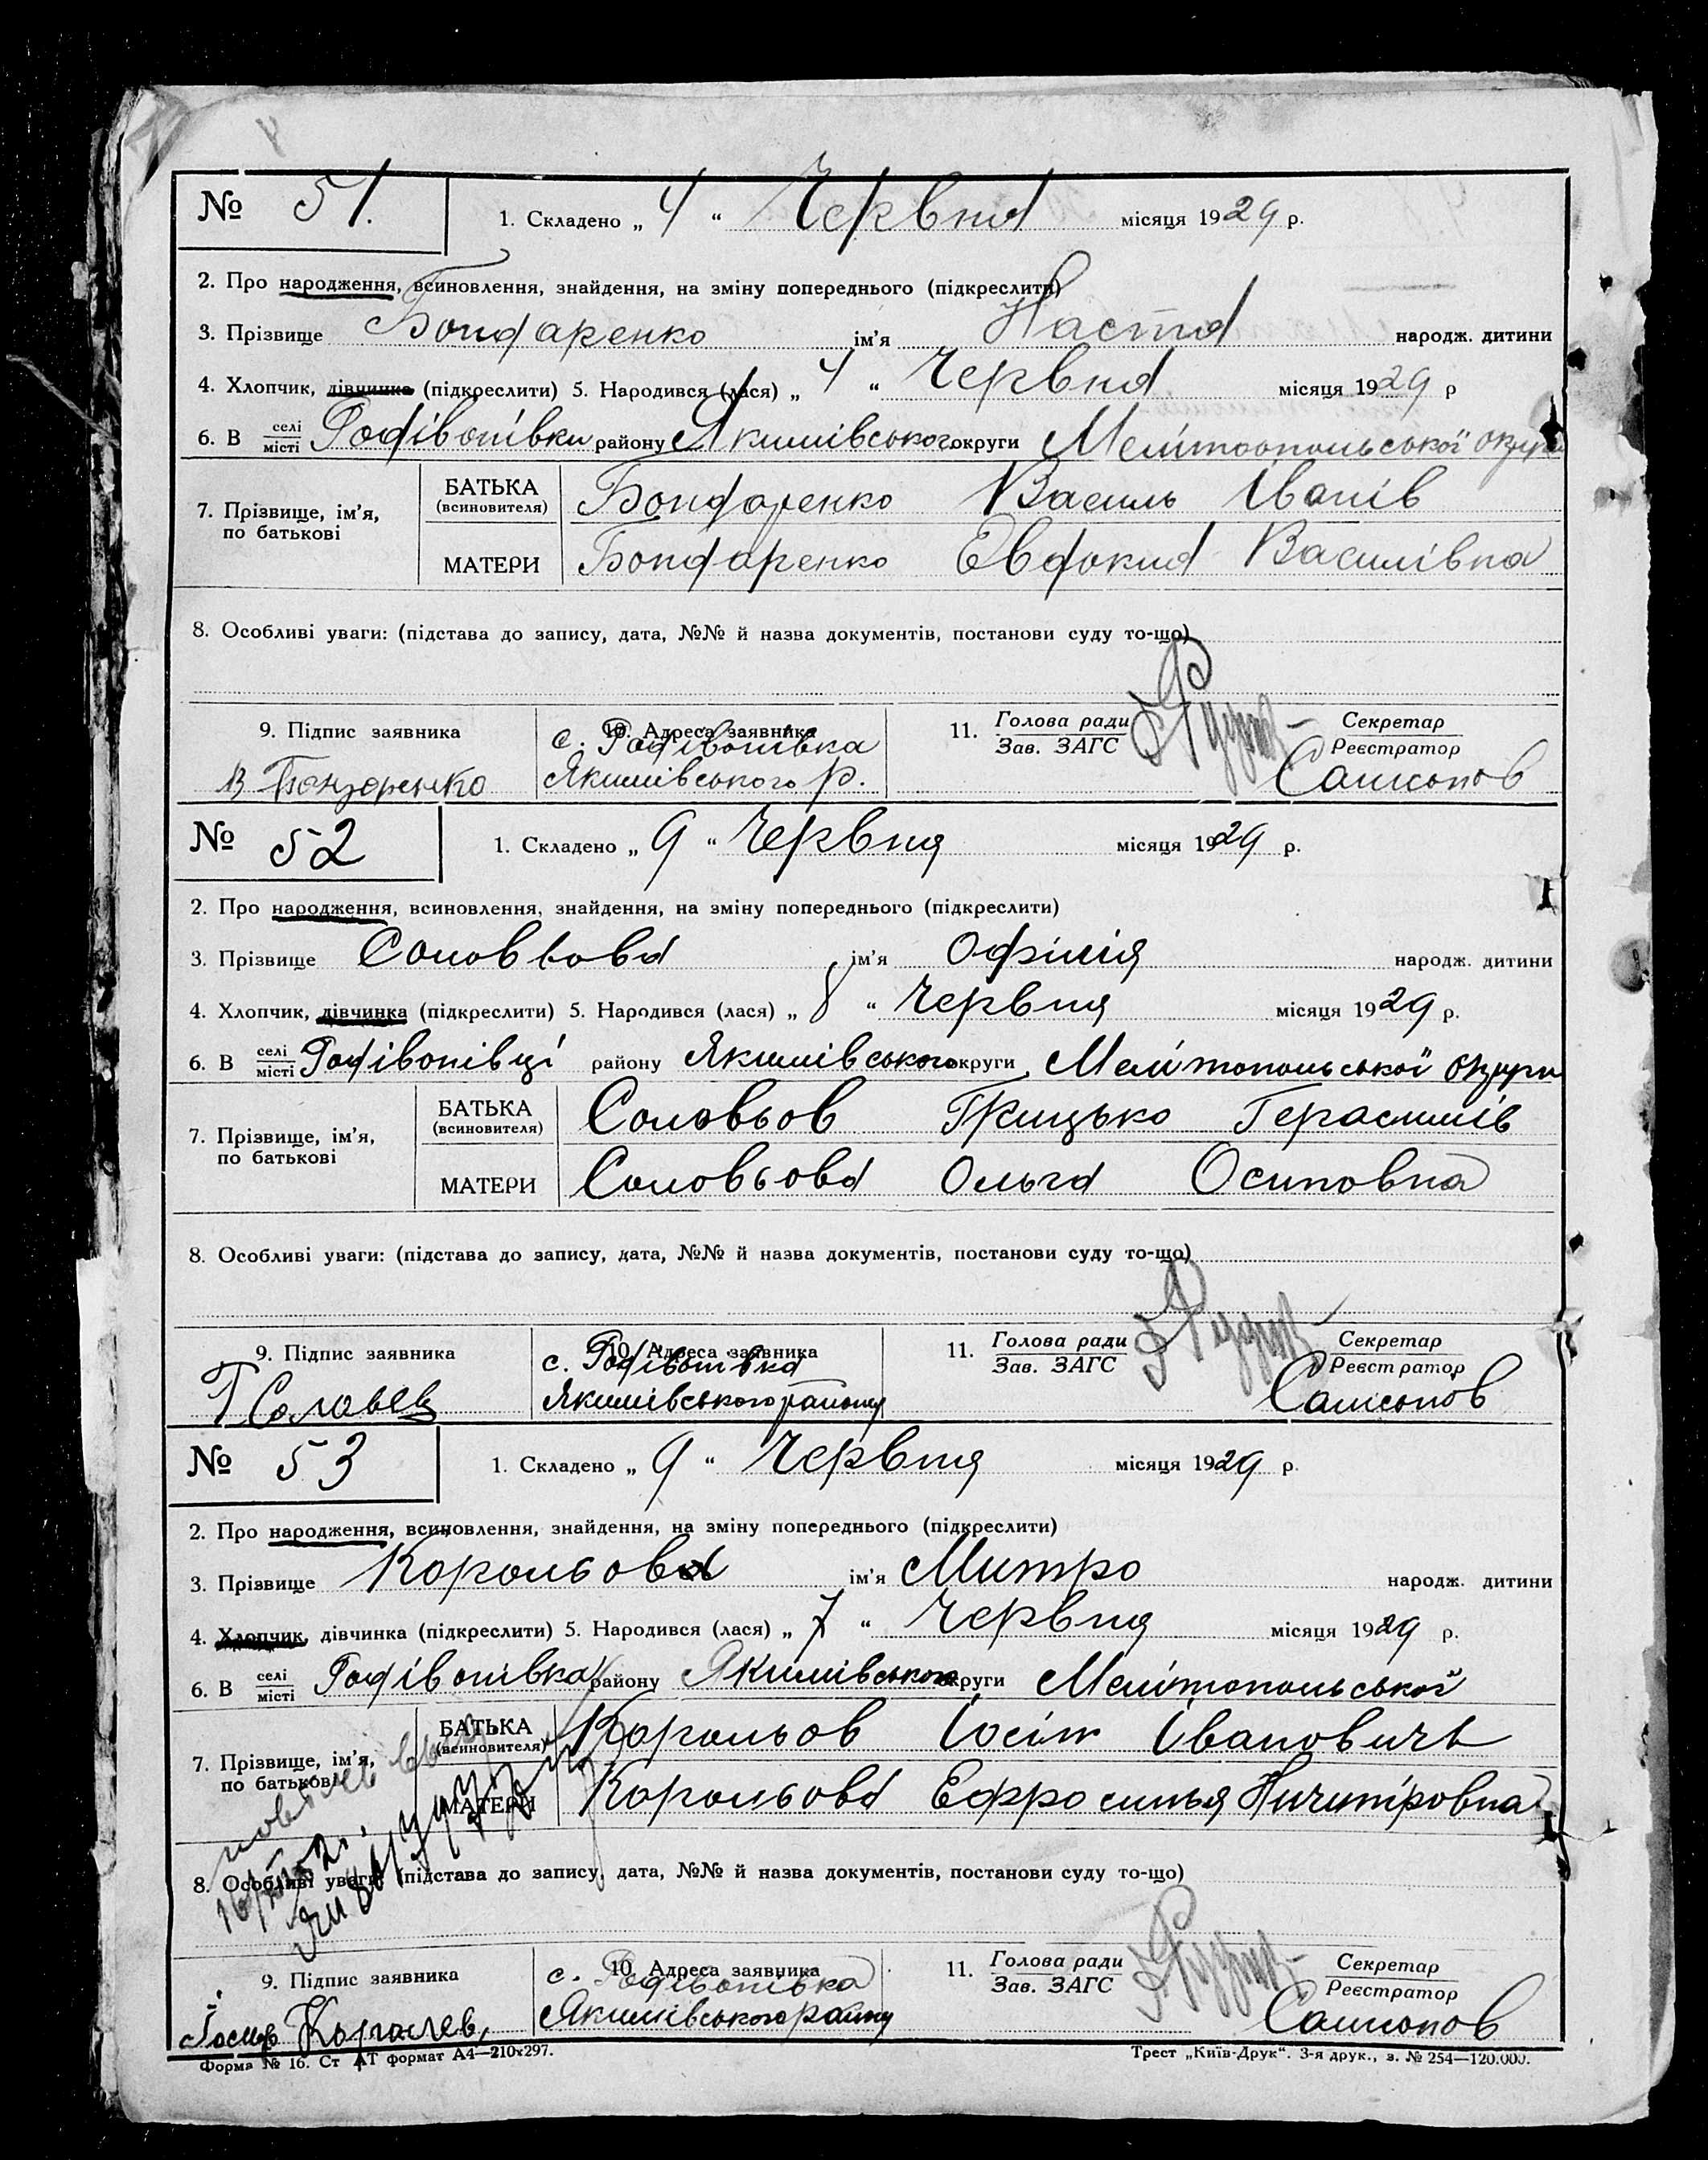 № 51. 1. Складено „ 4 “ Червня місяця 1929 р.
2. Про народження, всиновлення, знайдення, на зміну попереднього (підкреслити)
3. Прізвище Бондаренко ім'я Настя народж. дитини
4. Хлопчик, дівчинка (підкреслити) 5. Народився (лася) „ 4 “ Червня місяця 1929 р
6. В селі місті Родівонівки району Якимівського округи Мелітопольської округи
БАТЬКА (всиновителя) Бондаренко Василь Іванів
7. Прізвище, ім'я, по батькові
МАТЕРИ Бондаренко Евдокия Василівна
8. Особливі уваги: (підстава до запису, дата, №№ й назва документів, постанови суду то-що)
9. Підпис заявника 10. Адреса заявника 11. Голова ради Зав. ЗАГС Секретар Реєстратор
с. Родівонівка
В Бондаренко Якимівського р. Самсонов
№ 52 1. Складено „ 9 “ Червня місяця 1929 р.
2. Про народження, всиновлення, знайдення, на зміну попереднього (підкреслити)
3. Прізвище Соловьова ім'я Офілія народж. дитини
4. Хлопчик, дівчинка (підкреслити) 5. Народився (лася) „ 8 “ Червня місяця 1929 р.
6. В селі місті Родівонівці району Якимівського округи Мелітопольської округи
БАТЬКА (всиновителя) Соловьов Грицько Герасимів
7. Прізвище, ім'я, по батькові
МАТЕРИ Соловьова Ольга Осиповна
8. Особливі уваги: (підстава до запису, дата, №№ й назва документів, постанови суду то-що)
9. Підпис заявника 10. Адреса заявника 11. Голова ради Зав. ЗАГС Секретар Реєстратор
с. Родівонівка
Г Соловьев Якимівського району Самсонов
№ 53 1. Складено „ 9 “ Червня місяця 1929 р.
2. Про народження, всиновлення, знайдення, на зміну попереднього (підкреслити)
3. Прізвище Корольова ім'я Митро народж. дитини
4. Хлопчик, дівчинка (підкреслити) 5. Народився (лася) „ 7 “ Червня місяця 1929 р.
6. В селі місті Родівонівка району Якимівського округи Мелітопольської
БАТЬКА (всиновителя) Корольов Іосіп Івановичь
7. Прізвище, ім'я, по батькові
МАТЕРИ Корольова Ефросинья Ничитровна
8. Особливі уваги: (підстава до запису, дата, №№ й назва документів, постанови суду то-що)
9. Підпис заявника 10. Адреса заявника 11. Голова ради Зав. ЗАГС Секретар Реєстратор
с. Родівонівка
Іосиф Королев, Якимівського району Самсонов
Форма № 16. Ст АТ формат А4—210х297. Трест „Київ-Друк“. 3-я друк., з. № 254—120.000.